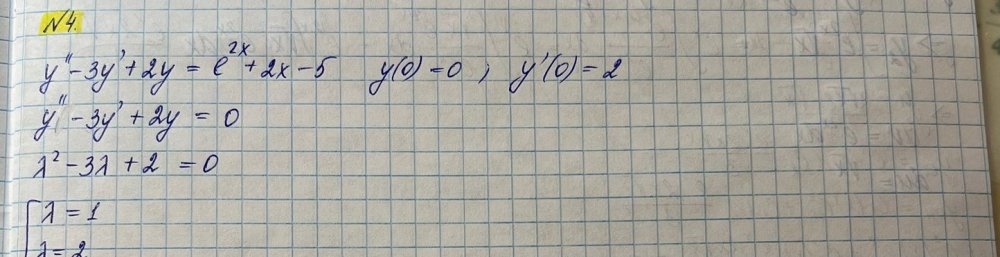 №4.
y'' - 3y' + 2y = e^{2x} + 2x - 5 y(0) = 0 ; y'(0) = 2
y'' - 3y' + 2y = 0
λ² - 3λ + 2 = 0
[λ = 1
λ = 2